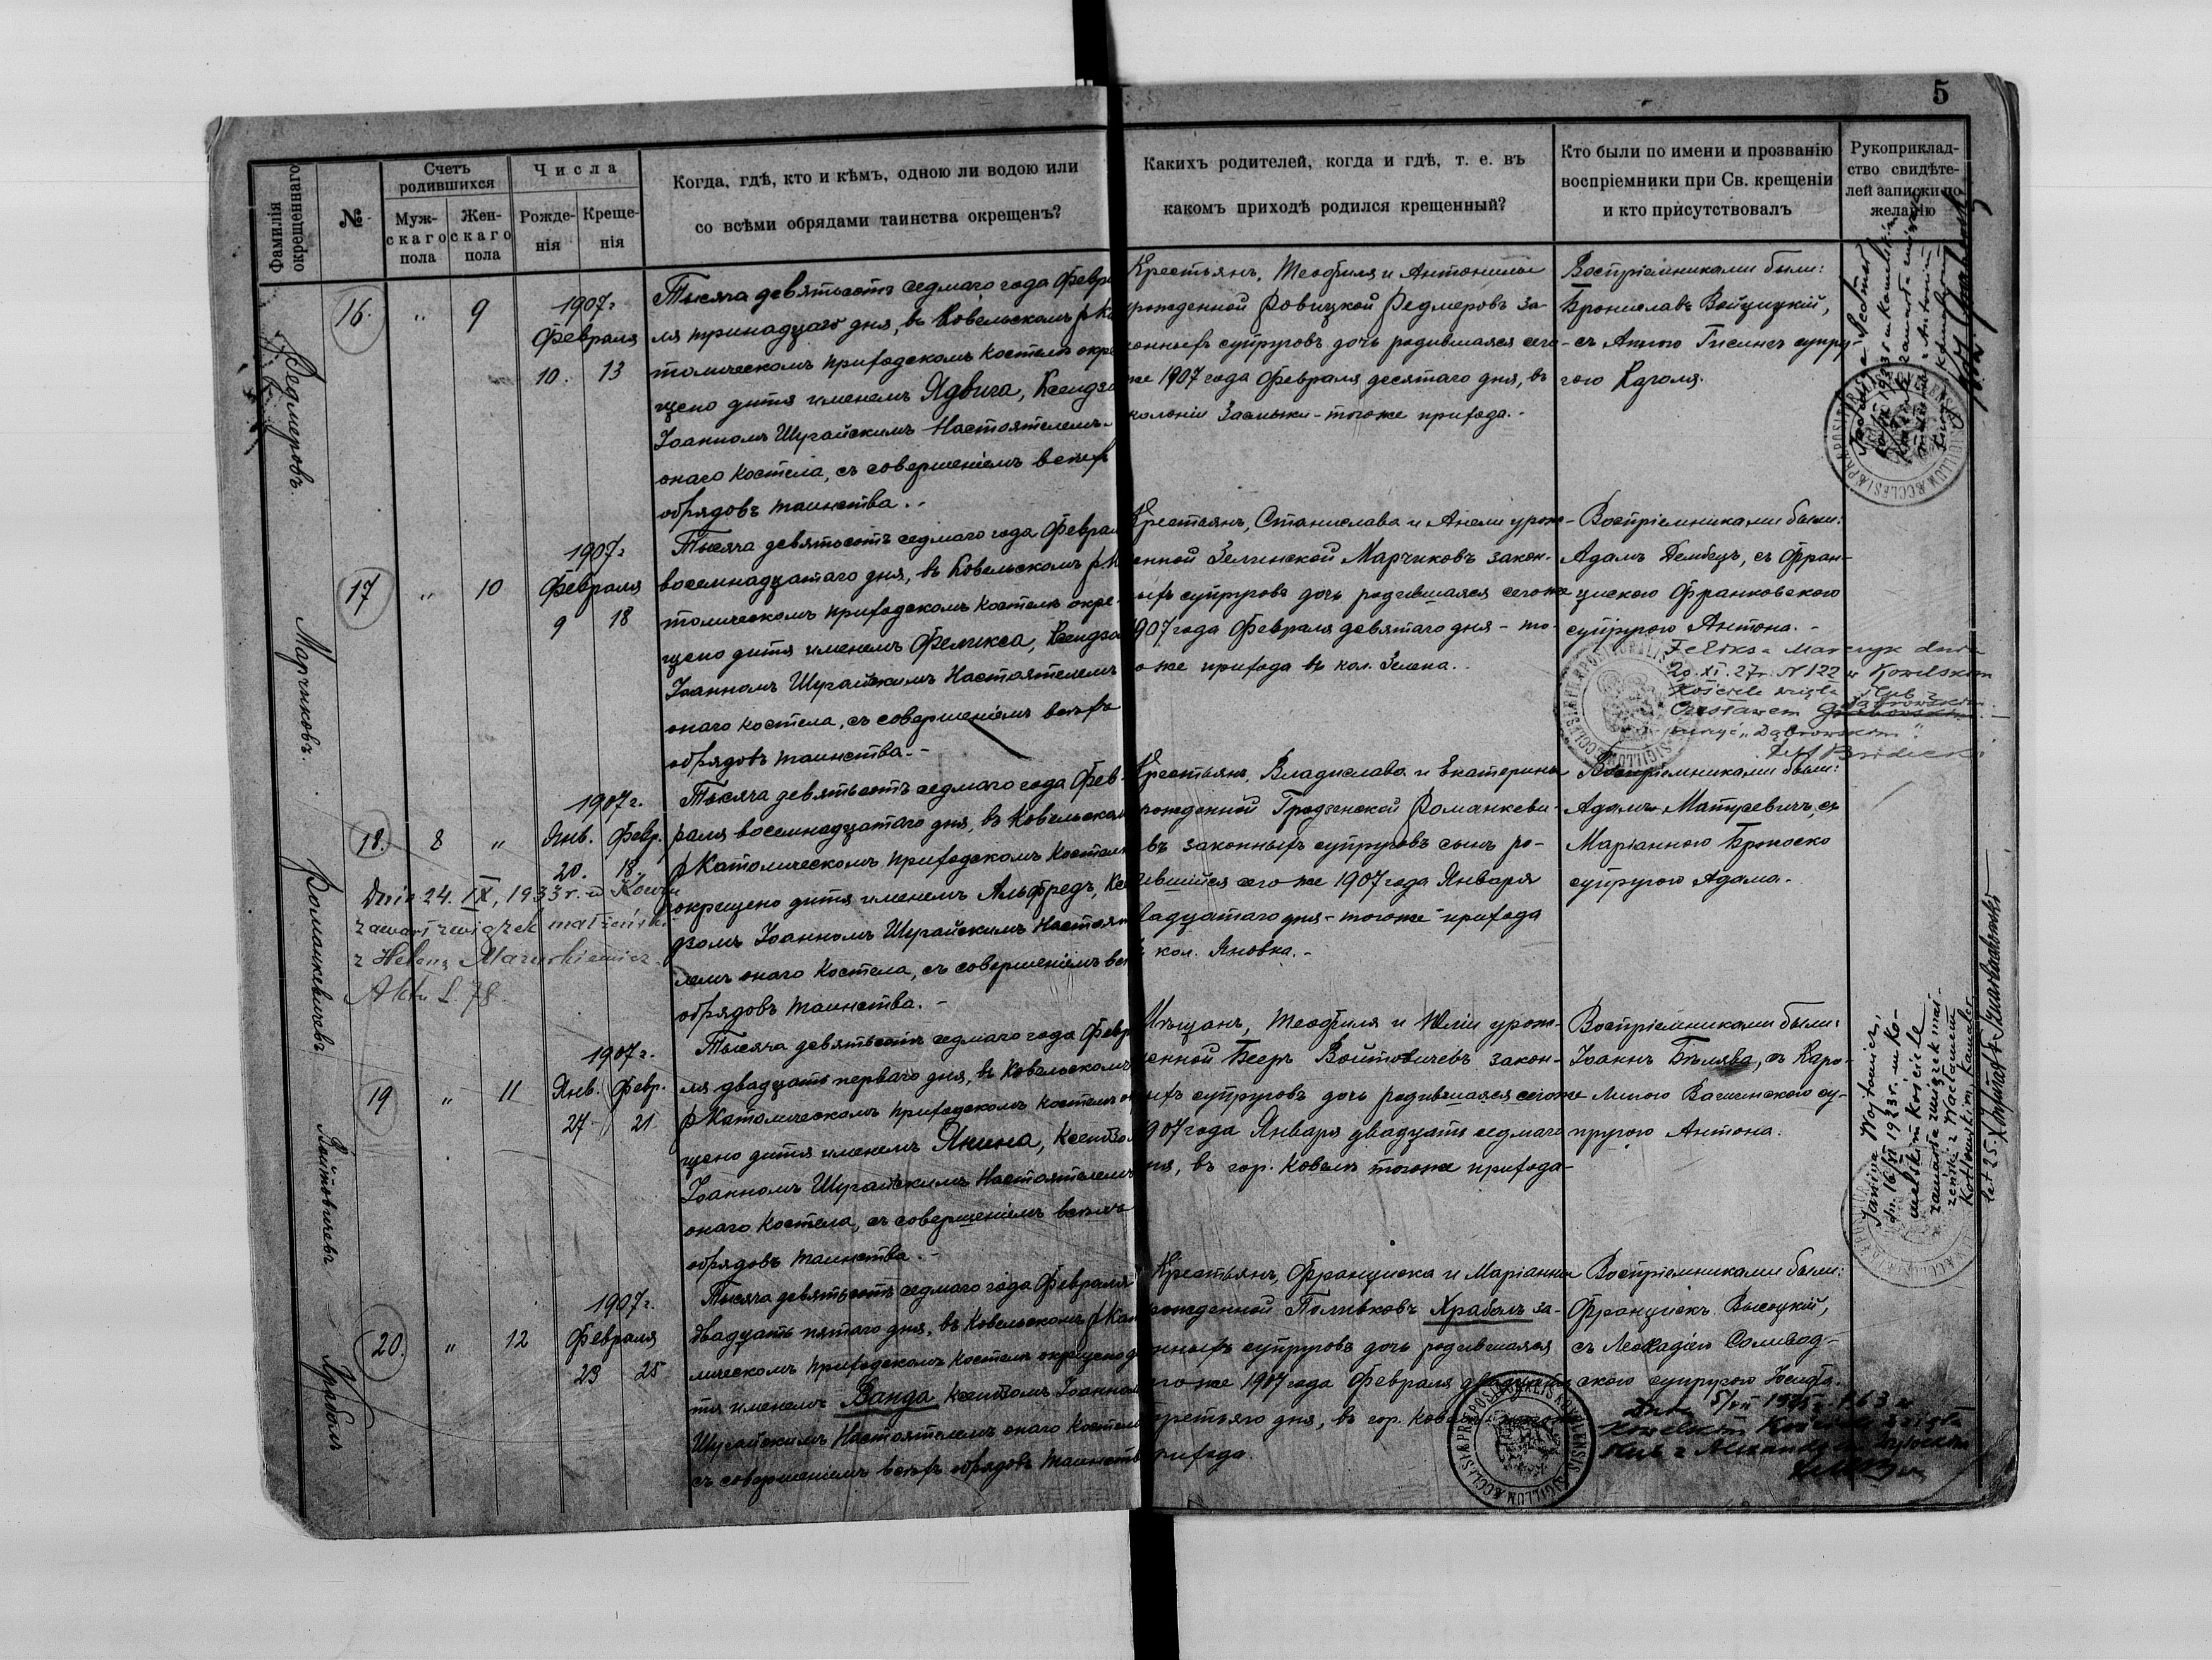 5
Фамилія окрещеннаго
№
Счетъ родившихся
Мужскаго пола
Женскаго пола
Числа
Рожденія
Крещенія
Когда, гдѣ, кто и кѣмъ, одною ли водою или
со всѣми обрядами таинства окрещенъ?
Какихъ родителей, когда и гдѣ, т. е. въ
какомъ приходѣ родился крещенный?
Кто были по имени и прозванію
воспріемники при Св. крещеніи
и кто присутствовалъ
Рукоприклад-
ство свидѣте-
лей записки по
желанію
Редмеровъ.
16.
" 9
1907 г.
Февраля
10. 13
Тысяча девятьсотъ седмаго года Февра
ля тринадцаго дня, въ Ковельскомъ р Ка
толическомъ приходскомъ костелѣ окре
щено дитя именемъ Ядвига, Ксендзо
Іоанномъ Шугайскимъ Настоятелемъ
онаго костела, съ совершеніемъ всѣхъ
обрядовъ таинства.
Крестьянъ, Теофиля и Антонины
урожденной Ровицкой Редмеровъ за-
конныхъ супруговъ дочь родившаяся сего
же 1907 года Февраля десятаго дня, въ
колоніи Засмыки - тогоже прихода.
Воспріемниками были:
Брониславъ Войцицкій,
съ Анною Гисингъ супру-
гою Кароля.
Марчиковъ.
17
" 10
1907 г.
Февраля
9 18
Тысяча девятьсотъ седмаго года Феврал
восемнадцатаго дня, въ Ковельскомъ р К
толическомъ приходскомъ костелѣ окре-
щено дитя именемъ Феликса, Ксендзо
Іоанномъ Шугайскимъ Настоятелемъ
онаго костела, съ совершеніемъ всѣхъ
обрядовъ таинства.-
Крестьянъ, Станислава и Анели урож-
енной Зелинской Марчиковъ закон-
ыхъ супруговъ дочь родившаяся сегоже
907 года Февраля девятаго дня - то-
оже прихода въ кол. Зелена.
Воспріемниками были:
Адамъ Дембецъ, съ Фран-
цискою Франковского
супругою Антона.-
Feliksa Marczyk dnia
20.XI.27 r. N 122 w Kowelskim
Kościele wzięła ślub z
Czesławem Dąbrowskim.
"Dąbrowskim".
Романкевичевъ
18.
8 "
1907 г.
Янв. Февр.
20. 18.
Тысяча девятьсотъ седмаго года Фев-
раля восемнадцатаго дня, въ Ковельском
р Католическомъ приходскомъ костелѣ
окрещено дитя именемъ Альфредъ, Ксе
дзомъ Іоанномъ Шугайскимъ Настоят
лемъ онаго костела, съ совершеніемъ всѣ
обрядовъ таинства.-
Крестьянъ, Владислава и Екатерины
рожденной Гродзенской Романкеви-
въ законныхъ супруговъ сынъ ро-
ившійся сегоже 1907 года Января
вадцатаго дня - тогоже прихода
кол. Яновка.-
Воспріемниками были:
Адамъ Матусевичъ, съ
Маріанною Броноско
супругою Адама.-
Dnia 24.IX.1933 r. w Kowlu
zawarł związek małżeński
z Heleną Maruszkiewicz.
Akt L. 78
Войтовичевъ
19
" 11
1907 г.
Янв. Февр.
27 21
Тысяча девятьсотъ седмаго года Февра
ля двадцать перваго дня, въ Ковельскомъ
р Католическомъ приходскомъ костелѣ ок
щено дитя именемъ Янина, Ксендзо
Іоанномъ Шугайскимъ Настоятелемъ
онаго костела, съ совершеніемъ всѣхъ
обрядовъ таинства.-
Мѣщанъ, Теофиля и Юліи урож-
енной Бееръ Войтовичевъ закон-
ыхъ супруговъ дочь родившаяся сегоже
907 года Января двадцать седмаго
ня, въ гор. Ковелѣ тогоже прихода-
Воспріемниками были:
Іоаннъ Бѣлява, съ Каро-
линою Вагинского су-
пругою Антона.
Janina Wojtowicz,
dn. 16/VI 1923 r. w Ko-
welskim kościele
zawarła związek mał-
żeński z Wacławem
Kotłowskim, kawaler
lat 25.
Храбалъ
20.
" 12
1907 г.
Февраля
23 25
Тысяча девятьсотъ седмаго года Февраля
двадцать пятаго дня, въ Ковельскомъ р Кат
лическомъ приходскомъ костелѣ окрещено д
тя именемъ Ванда Ксендзомъ Іоанном
Шугайскимъ Настоятелемъ онаго костела
съ совершеніемъ всѣхъ обрядовъ таинств
Крестьянъ, Франциска и Маріанны
рожденной Поливковъ Храбалъ за-
онныхъ супруговъ дочь родившаяся
егоже 1907 года Февраля двадцать
третьяго дня, въ гор. Ковелѣ тогоже
рихода.
Воспріемниками были:
Францискъ Высоцкій,
съ Леокадіею Соливод-
ского супругою Іосифа.